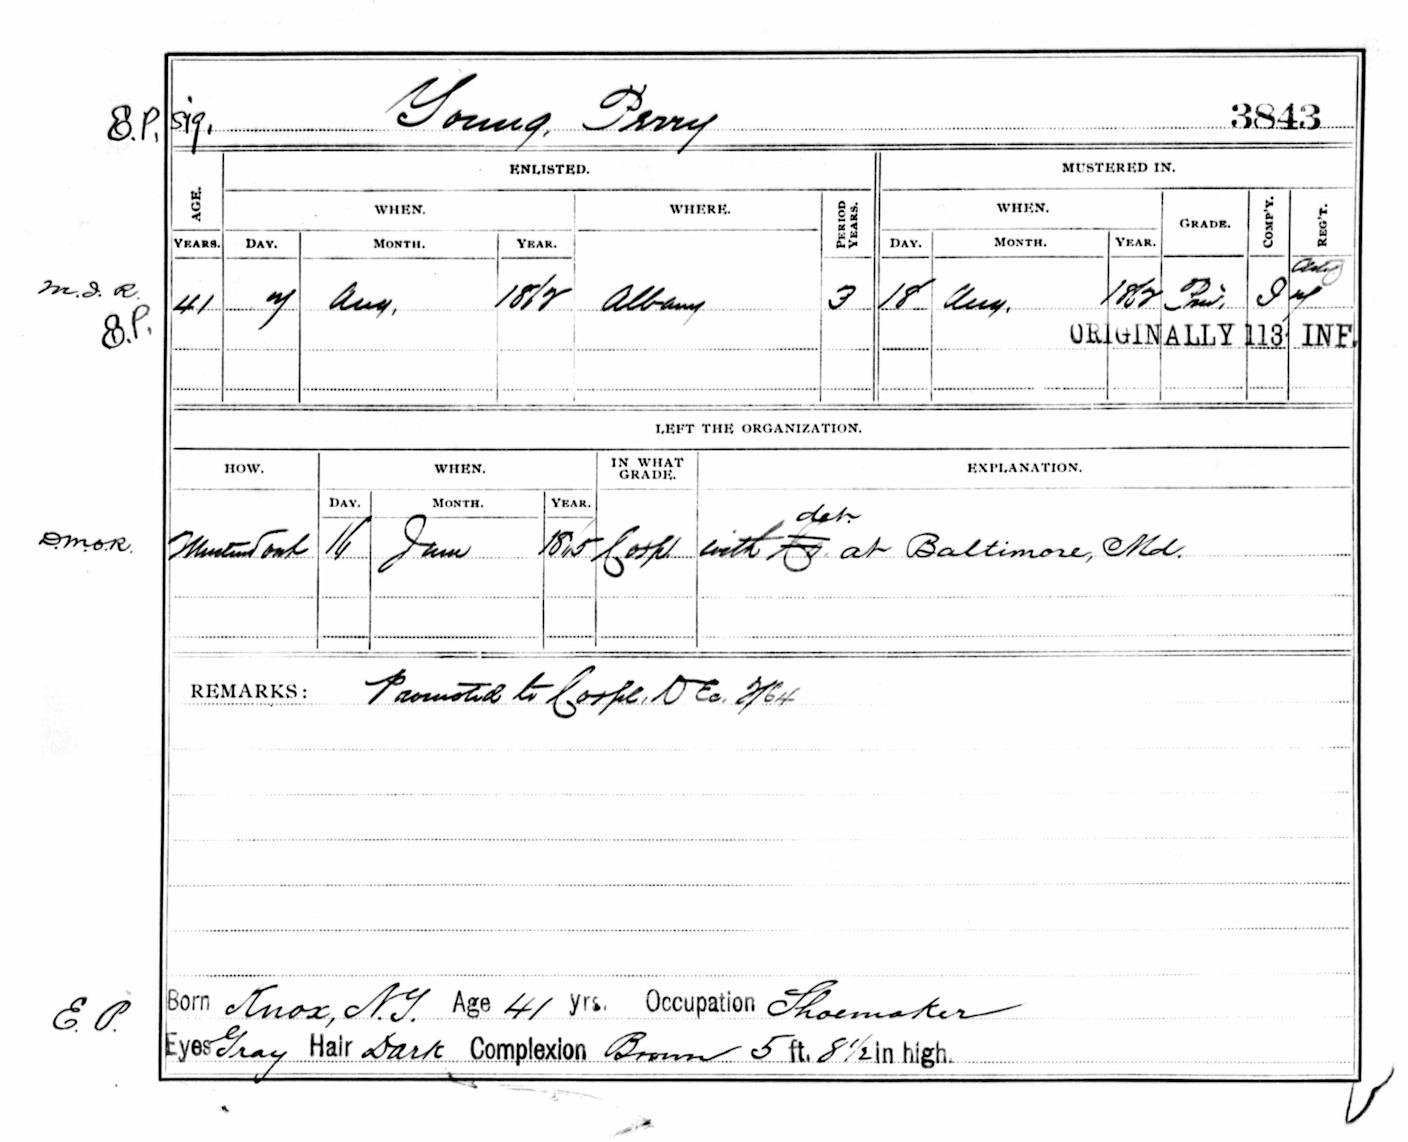 E.P. sig. Young, Perry 3843
ENLISTED. MUSTERED IN.
AGE. WHEN. WHERE. PERIOD YEARS. WHEN. GRADE. COMP'Y. REG'T.
YEARS. DAY. MONTH. YEAR. DAY. MONTH. YEAR.
M.I.R. 41 7 Aug. 1862 Albany 3 18 Aug. 1862 Priv. I 7 Arty
E.P.
ORIGINALLY 113 INF.
LEFT THE ORGANIZATION.
HOW. WHEN. IN WHAT GRADE. EXPLANATION.
DAY. MONTH. YEAR.
det.
D.M.O.R. Mustered out 16 June 1865 Corpl with Co. at Baltimore, Md.
REMARKS: Promoted to Corpl. Dec. /64
E.P. Born Knox, N.Y. Age 41 yrs. Occupation Shoemaker
Eyes Gray Hair Dark Complexion Brown 5 ft. 8 1/2 in high.